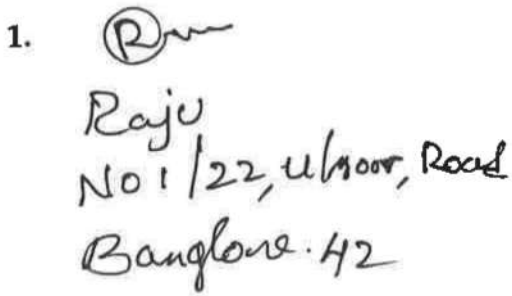 1.
Raju
No 1/22, Ulsoor, Road
Banglore. 42